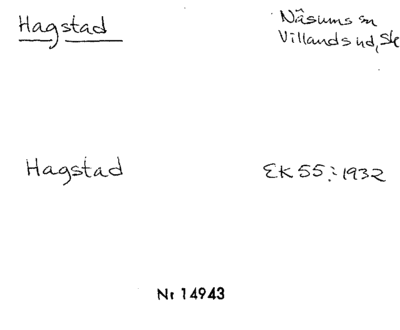 Hagstad
Näsums sn
Villands hd, Sk
Hagstad
EK 55: 1932
Nr 14943